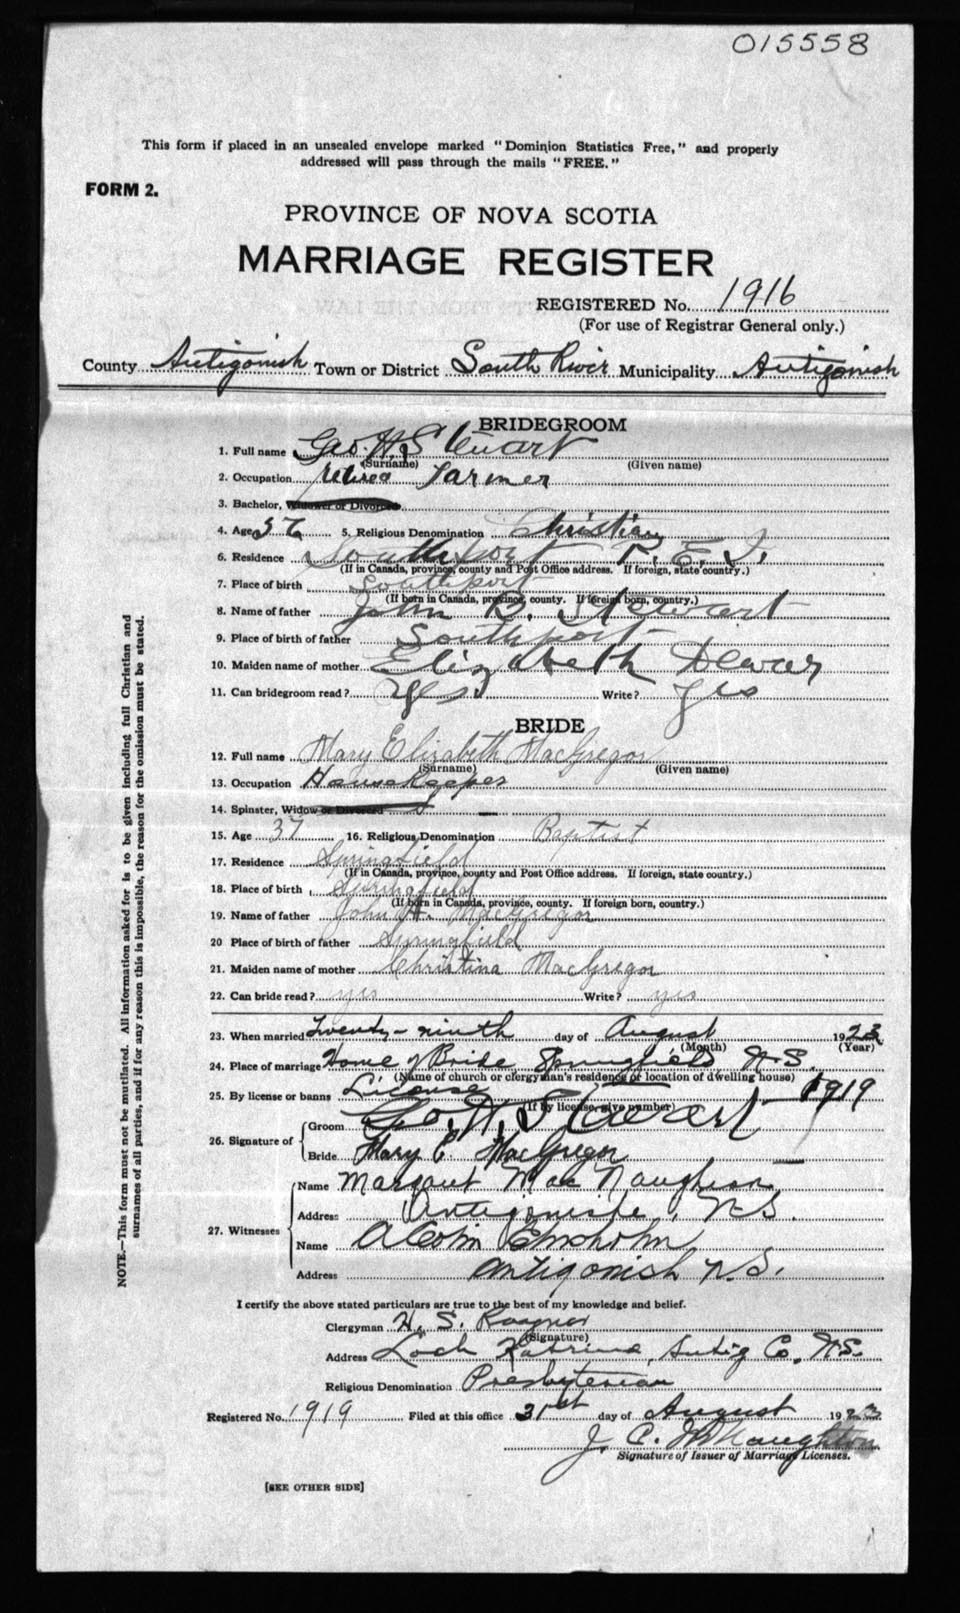 015558
This form if placed in an unsealed envelope marked "Dominion Statistics Free," and properly
addressed will pass through the mails "FREE."
FORM 2.
PROVINCE OF NOVA SCOTIA
MARRIAGE REGISTER
REGISTERED No. 1916
(For use of Registrar General only.)
County Antigonish Town or District South River Municipality Antigonish
BRIDEGROOM
1. Full name Geo. H. Stewart
(Surname) (Given name)
2. Occupation retired Farmer
3. Bachelor, Widower or Divorced
4. Age 5. Religious Denomination Christian
6. Residence Southport P. E. I.
(If in Canada, province, county and Post Office address. If foreign, state country.)
7. Place of birth Southport
(If born in Canada, province, county. If foreign born, country.)
8. Name of father John B. Stewart
9. Place of birth of father Southport
10. Maiden name of mother Elizabeth Dewar
11. Can bridegroom read? Yes Write? Yes
BRIDE
12. Full name Mary Elizabeth MacGregor
(Surname) (Given name)
13. Occupation HouseKeeper
14. Spinster, Widow or Divorced
15. Age 37 16. Religious Denomination Baptist
17. Residence Springfield
(If in Canada, province, county and Post Office address. If foreign, state country.)
18. Place of birth Springfield
(If born in Canada, province, county. If foreign born, country.)
19. Name of father John A. MacGregor
20 Place of birth of father Springfield
21. Maiden name of mother Christina MacGregor
22. Can bride read? yes Write? yes
23. When married Twenty-ninth day of August 1923
(Month) (Year)
24. Place of marriage Home of Bride Springfield N.S.
(Name of church or clergyman's residence or location of dwelling house)
25. By license or banns License 1919
(If by license, give number)
26. Signature of Groom Geo. H. Stewart
Bride Mary E. MacGregor
27. Witnesses
Name Margaret MacNaughton
Address Antigonish, N.S.
Name A Colin Chisholm
Address Antigonish N.S.
I certify the above stated particulars are true to the best of my knowledge and belief.
Clergyman H. S. Raymer
(Signature)
Address Loch Katrine, Antig Co, N.S.
Religious Denomination Presbyterian
Registered No. 1919 Filed at this office 31st day of August 1923
J. C. McNaughton
Signature of Issuer of Marriage Licenses.
[SEE OTHER SIDE]
NOTE.—This form must not be mutilated. All information asked for is to be given including full Christian and
surnames of all parties, and if for any reason this is impossible, the reason for the omission must be stated.